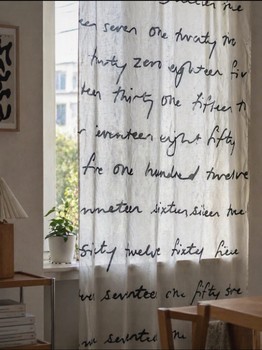 een seven one twenty
thirty zero eighteen fiv
teen thirty one fifteen t
eventeen eight fifty
five one hundred twelve
nineteen sixteen
sixty twelve sixty five
seventee one fifty
seventee